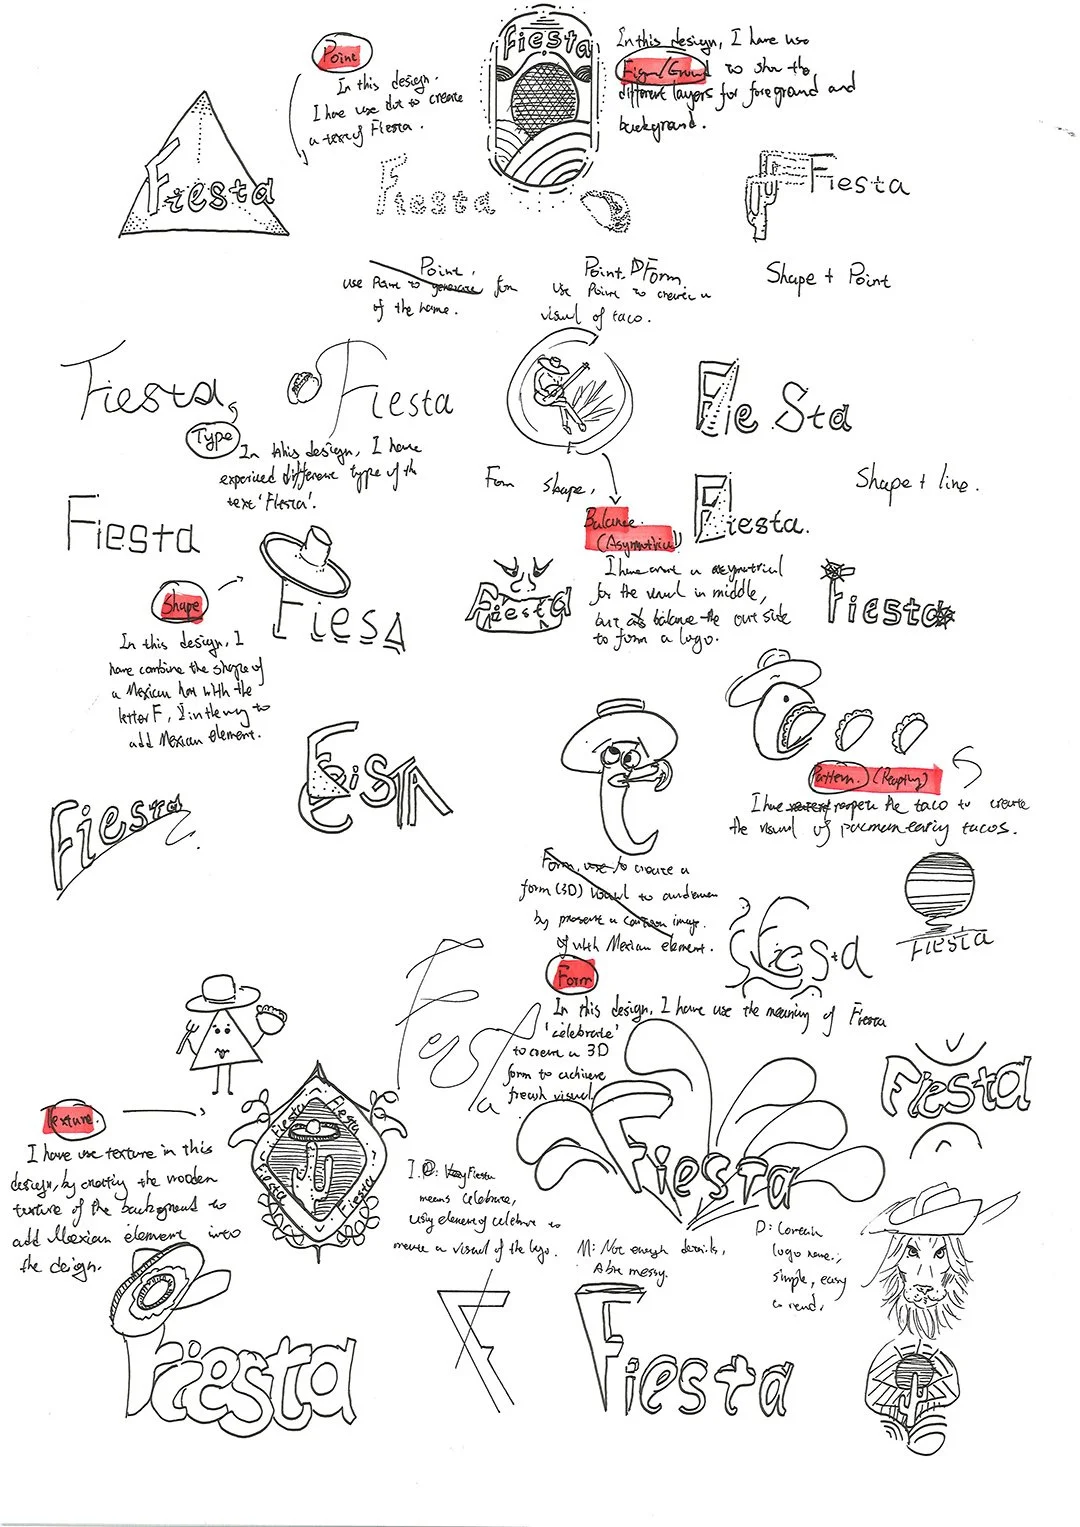 Point
In this design.
I have use dot to create
a text of Fiesta.
Fiesta
In this design, I have use
Figure/Ground to show the
different layers for foreground and
background.
Fiesta
Fiesta
Fiesta
Point.
use Point to generate form
of the name.
Point. Form
use Point to create a
visual of taco.
Shape + Point
Fiesta
Fiesta
Type
In this design, I have
different type of the
text 'Fiesta'.
Form shape,
FieSta
Shape + line.
Fiesta
Fiesta.
Balance.
(Asymmetrical)
I have a asymetrical
for the visual in middle,
but balance the out side
to form a logo.
Fiesta
Fiesta
Shape
In this design, I
have combine the shape of
a Mexican hat with the
letter F, to
add Mexican element.
Fiesta
Fiesta
FiESTA
Pattern. (Reapting)
I have reapete the taco to create
the visual of pacman eating tacos.
Form, use to create a
form (3D) visual to audience
by present a cartoon image.
of with Mexican element.
Fiesta
Fiesta
Form
In this design, I have use the meaning of Fiesta
'celebrate'
to create a 3D
form to achieve
fresh visual.
Fiesta
Fiesta
Texture.
I have use texture in this
design, by creating the wooden
texture of the background to
add Mexican element into
the deign.
Fiesta Fiesta
Fiesta Fiesta
Fiesta
I: Fiesta
means celebrate,
using element of celebrate to
create a visual of the logo.
M: Not enough details,
A bit messy.
D:
logo name.,
simple, easy
to read.
Fiesta
F
Fiesta